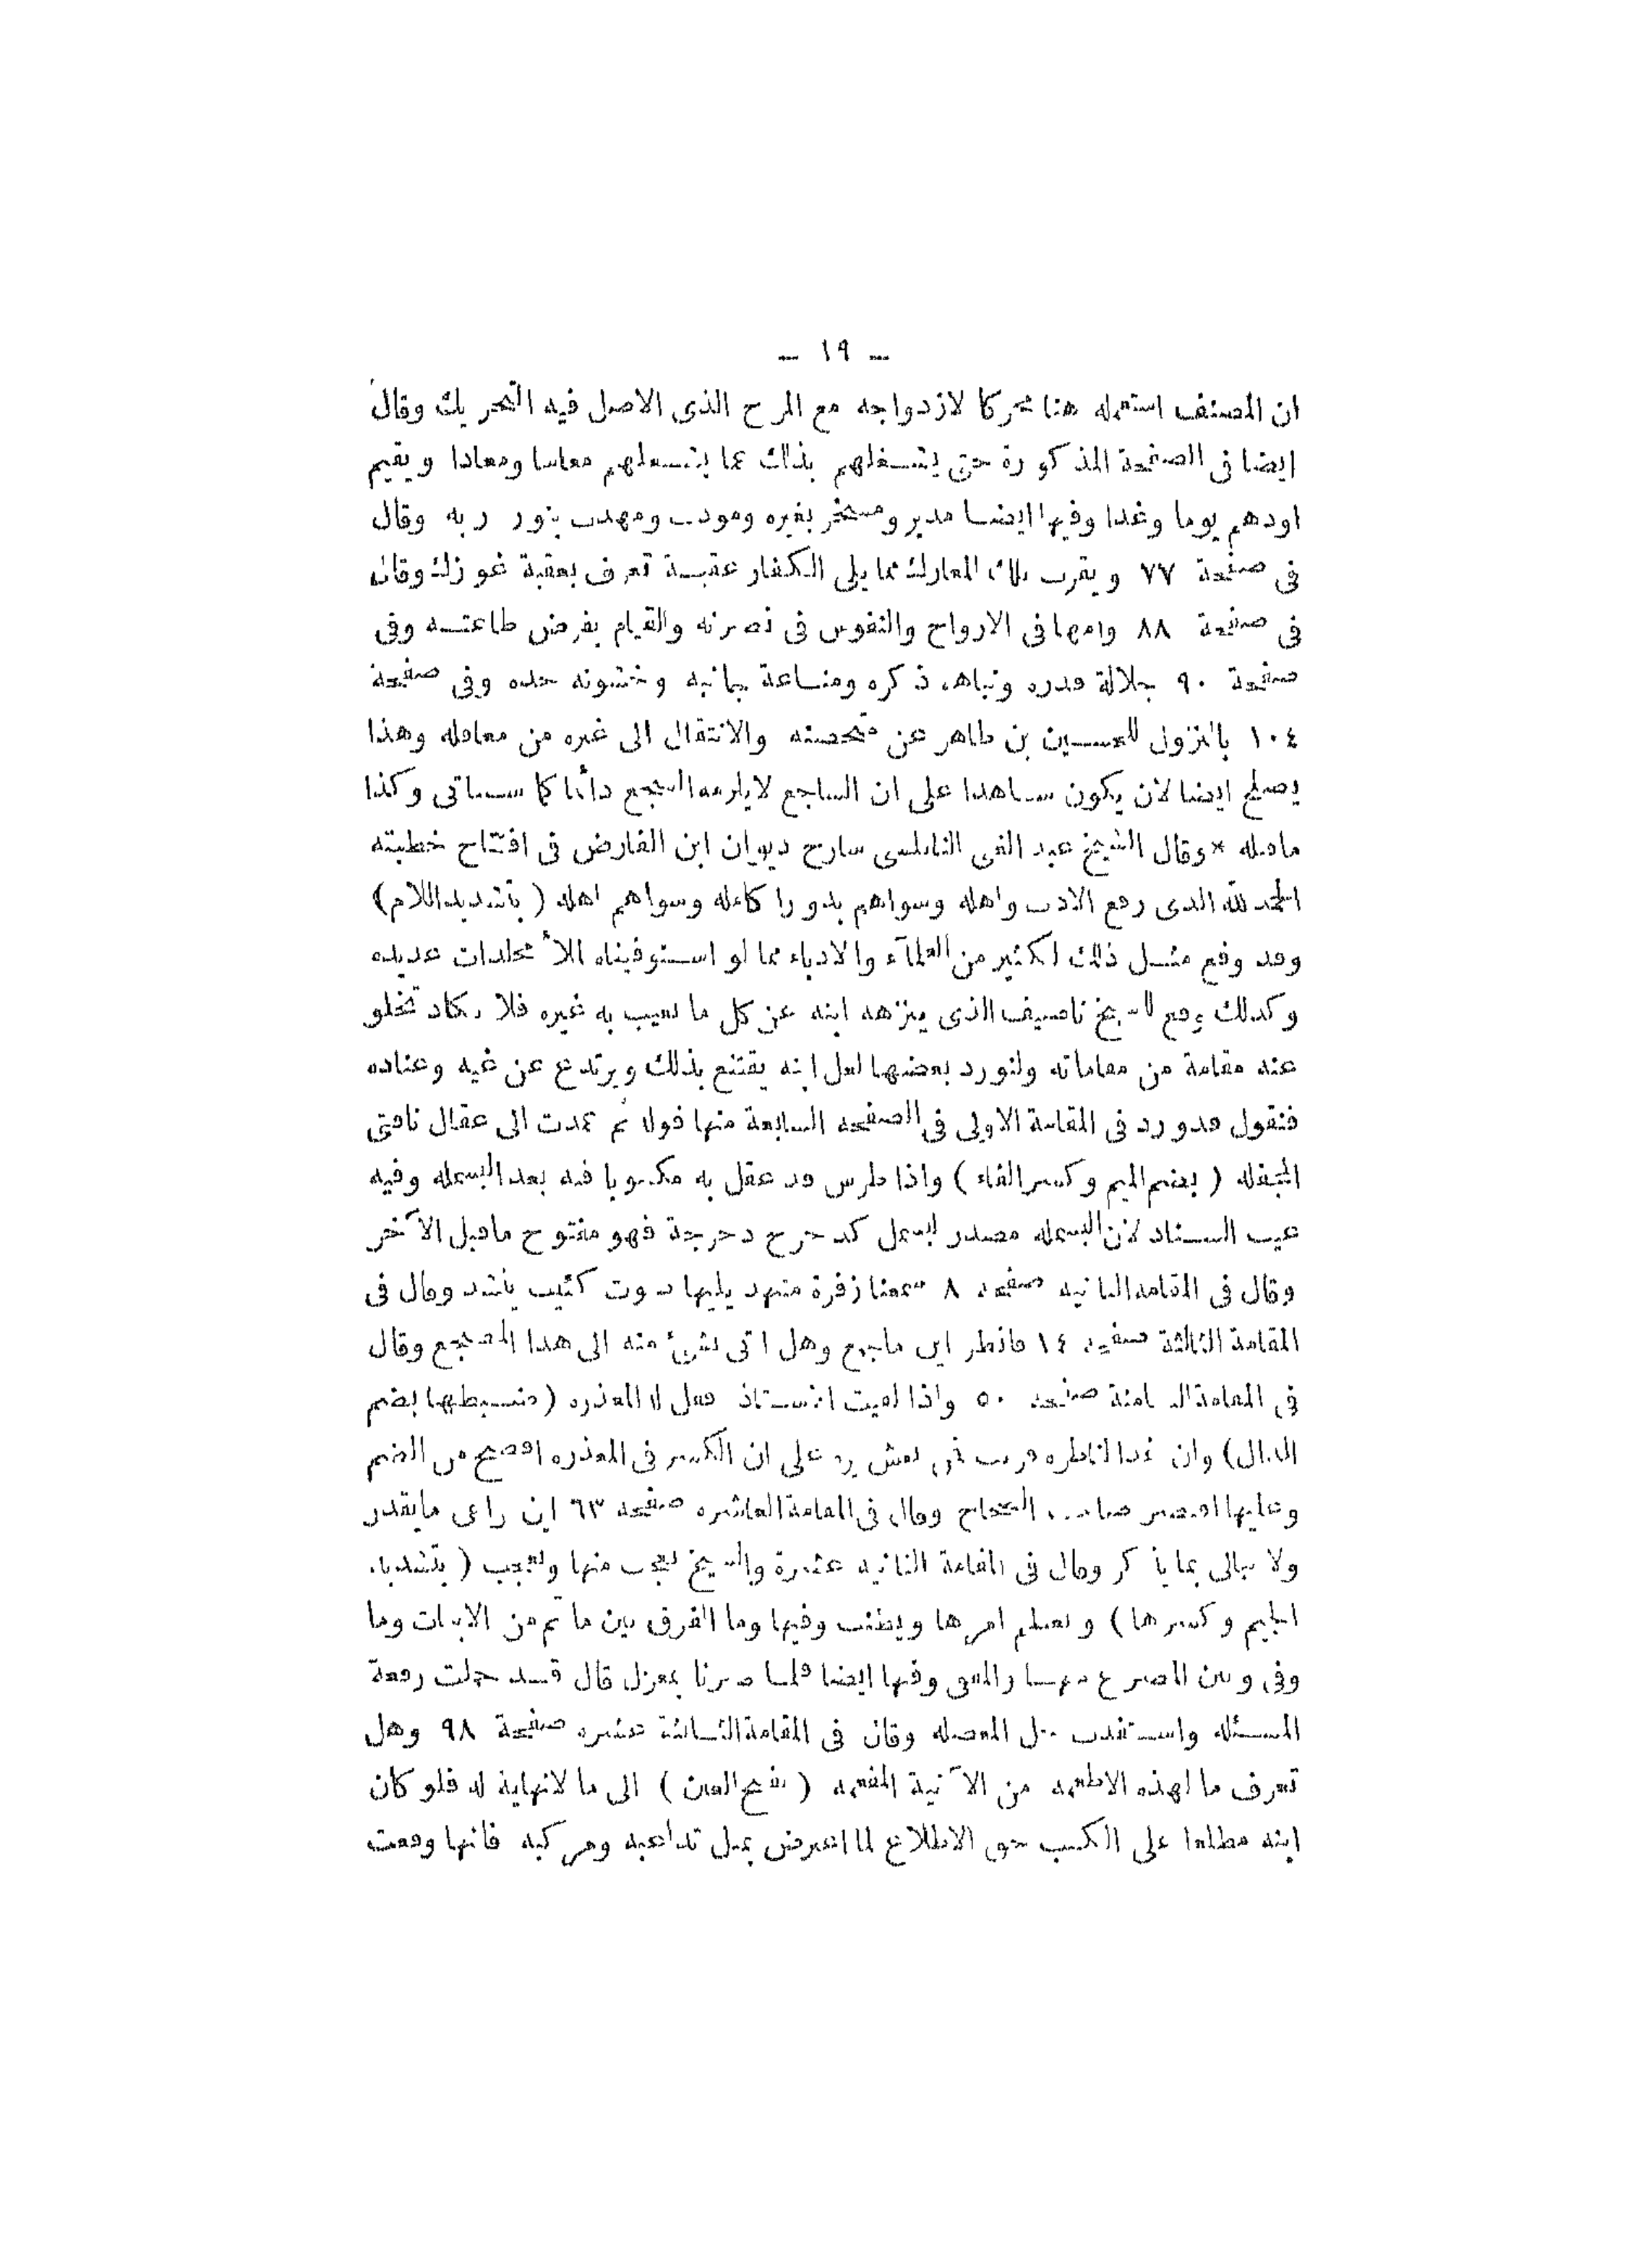 – ١٩ –
ان المصنف استعمله هنا محركا لازدواجه مع المرح الذى الاصل فيه التحريك وقال
ايضا فى الصفحة المذكورة حتى يشغلهم بذلك عما يشعلهم معاشا ومعادا ويقيم
اودهم يوما وغدا وفيها ايضا مدبر ومسخر بغيره ومودب ومهدب بنور ربه وقال
فى صفحة ٧٧ ويقرب تلك المعارك مما يلى الكفار عقبة تعرف بعقبة غوزك وقال
فى صفحة ٨٨ وامها فى الارواح والنفوس فى نصرته والقيام بفرض طاعته وفى
صفحة ٩٠ بجلالة قدره ونباهة ذكره ومناعة جانبه وخشونة حده وفى صفحة
١٠٤ بالنزول للحسين بن طاهر عن متحصنه والانتقال الى غيره من معاقله وهذا
يصلح ايضا لان يكون شاهدا على ان الساجع لايلزمه السجع دائما كما سياتى وكذا
ماقبله * وقال الشيخ عبد الغنى النابلسى شارح ديوان ابن الفارض فى افتتاح خطبته
الحمد لله الذى رفع الادب واهله وسواهم بدورا كامله وسواهم اهله ( بتشديد اللام )
وقد وقع مثل ذلك لكثير من العلمآء والادباء مما لو استوفيناه لملأ مجلدات عديده
وكذلك وقع للشيخ ناصيف الذى ينزهه ابنه عن كل ما يعيب به غيره فلا تكاد تخلو
عنه مقامة من مقاماته ولنورد بعضها لعل ابنه يقتنع بذلك ويرتدع عن غيه وعناده
فنقول قد ورد فى المقامة الاولى فى الصفحه السابعة منها قوله ثم عمدت الى عقال ناقتى
المجفله ( بضم الميم وكسر الفاء ) واذا طرس قد عقل به مكتوبا فيه بعد البسمله وفيه
عيب السناد لان البسمله مصدر لبسمل كدحرج دحرجة فهو مفتوح ماقبل الآخر
وقال فى المقامه الثانيه صفحه ٨ سمعنا زفرة متنهد يليها صوت كئيب ينشد وقال فى
المقامة الثالثة صفحه ١٤ فانظر اين ماجمع وهل اتى بشئ منه الى هذا المضجع وقال
فى المقامة الثامنة صفحه ٥٠ واذا لقيت الاستاذ فقل له المعذره ( ضبطها بضم
الذال ) وان غدا لناظره قريب على ان الكسر فى المعذره افصح من الضم
وعليها اقتصر صاحب الصحاح وقال فى المقامة العاشره صفحه ٦٣ اين راعى مايقدر
ولا يبالى بما ياكر وقال فى المقامة الثانيه عشرة والشيخ يعجب منها ويعجب ( بتشديد
الجيم وكسرها ) ويعظم امرها ويطنب وفيها وما الفرق بين ما تم من الابيات وما
وفى وبين المصرع منها والمقفى وفيها ايضا فلما صرنا بمعزل قال قد حملت رقعة
المسئله واستفدت حل المعضله وقال فى المقامة الثالثة عشره صفحة ٩٨ وهل
تعرف ما لهذه الاطعمه من الآنية المفعمه ( بفتح العين ) الى ما لانهاية له فلو كان
ابنه مطلعا على الكتب حق الاطلاع لما اعترض بمثل تداعبه ومركبه فانها وقعت